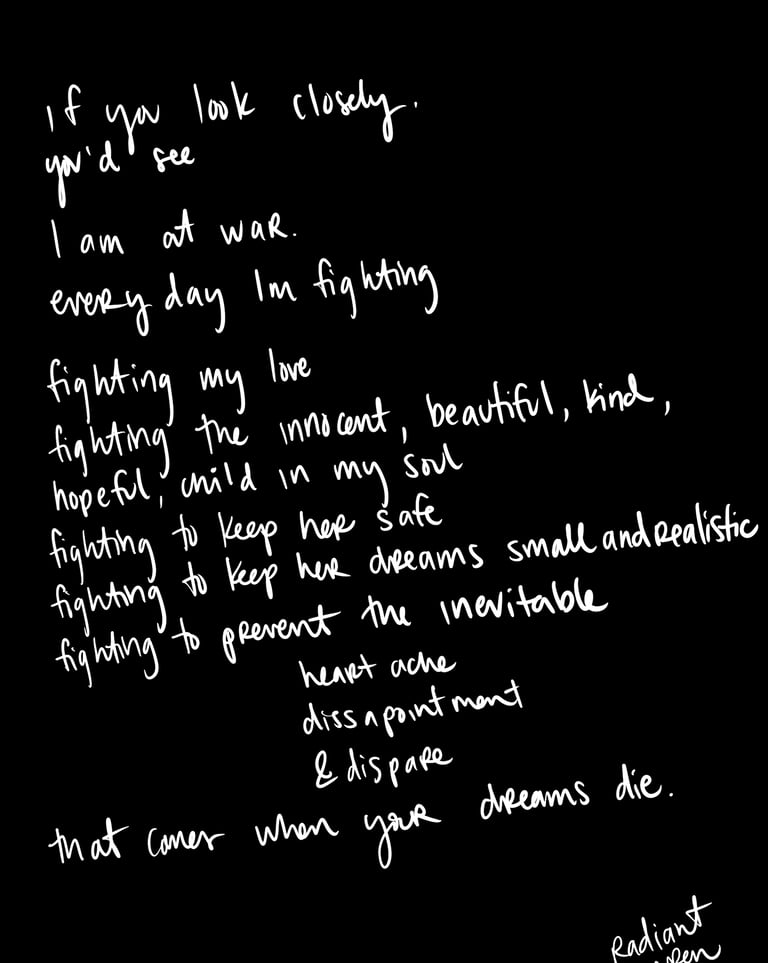 If you look closely.
you'd see
I am at war.
every day Im fighting
fighting my love
fighting the innocent, beautiful, kind,
hopeful, child in my soul
fighting to keep her safe
fighting to keep her dreams small and realistic
fighting to prevent the inevitable
heart ache
dissapointment
& dispare
that comes when your dreams die.
Radiant